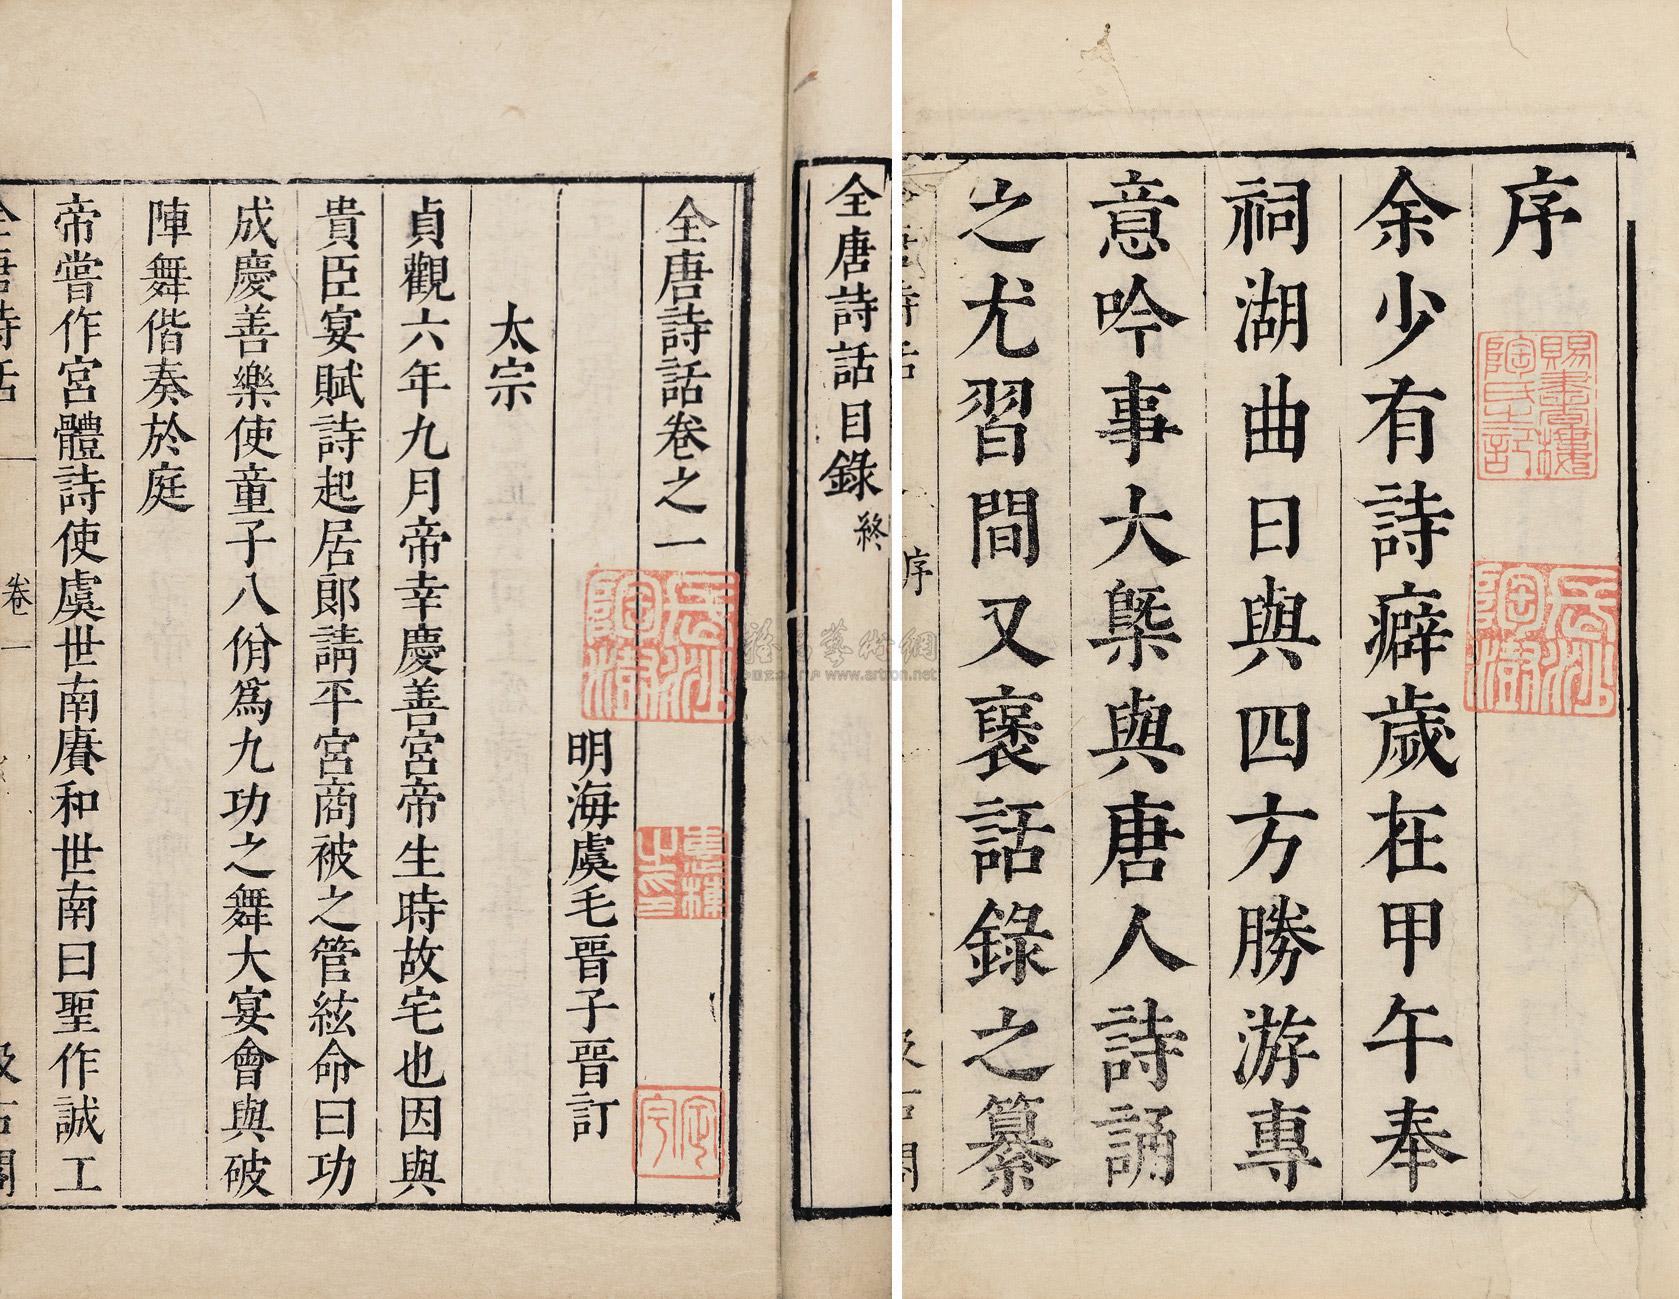 序
余少有詩癖歲在甲午奉
祠湖曲日與四方勝游專
意吟事大槩與唐人詩誦
之尤習間又裒話錄之纂
序
全唐詩話目錄終
全唐詩話卷之一
明海虞毛晉子晉訂
太宗
貞觀六年九月帝幸慶善宮帝生時故宅也因與
貴臣宴賦詩起居郎請平宮商被之管絃命曰功
成慶善樂使童子八佾爲九功之舞大宴會與破
陣舞偕奏於庭
帝嘗作宮體詩使虞世南賡和世南曰聖作誠工
全唐詩話
卷一
汲古閣
賜書樓
陶氏士記
惠棟之印
定宇
www.artxun.net